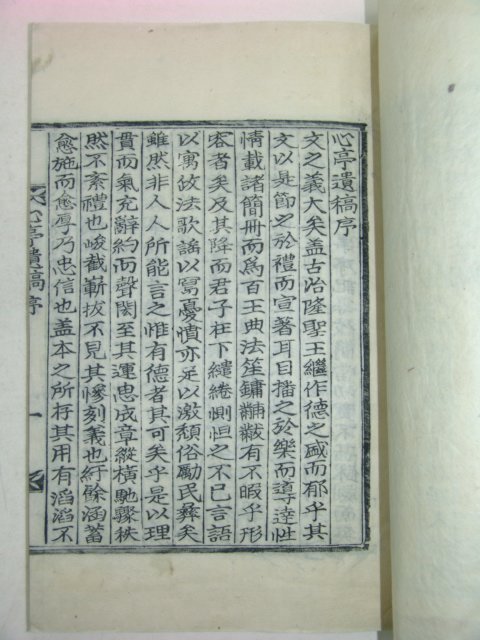 心亭遺稿序
文之義大矣盖古治隆聖王繼作德之盛而郁乎其
文以是節之於禮而宣著耳目播之於樂而導達性
情載諸簡冊而爲百王典法笙鏞黼黻有不暇乎形
容者矣及其降而君子在下繾綣惻怛之不已言語
以寓放法歌謠以寫憂憤亦足以激頹俗勵民彝矣
雖然非人人所能言之惟有德者其可矣乎是以理
貫而氣充辭約而聲閎至其運忠成章縱橫馳驟秩
然不紊禮也峻截嶄拔不見其慘刻義也紆餘涵蓄
愈施而愈厚乃忠信也盖本之所存其用有滔滔不
心亭遺稿序
一